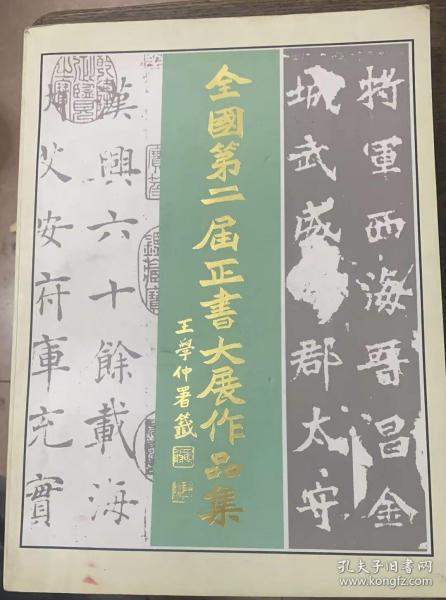 将軍西海哥昌金
城武威郡太守
全國第二届正書大展作品集
王學仲署籤
漢興六十餘載海
艾安府庫充實
孔夫子旧书网
www.kongfz.com